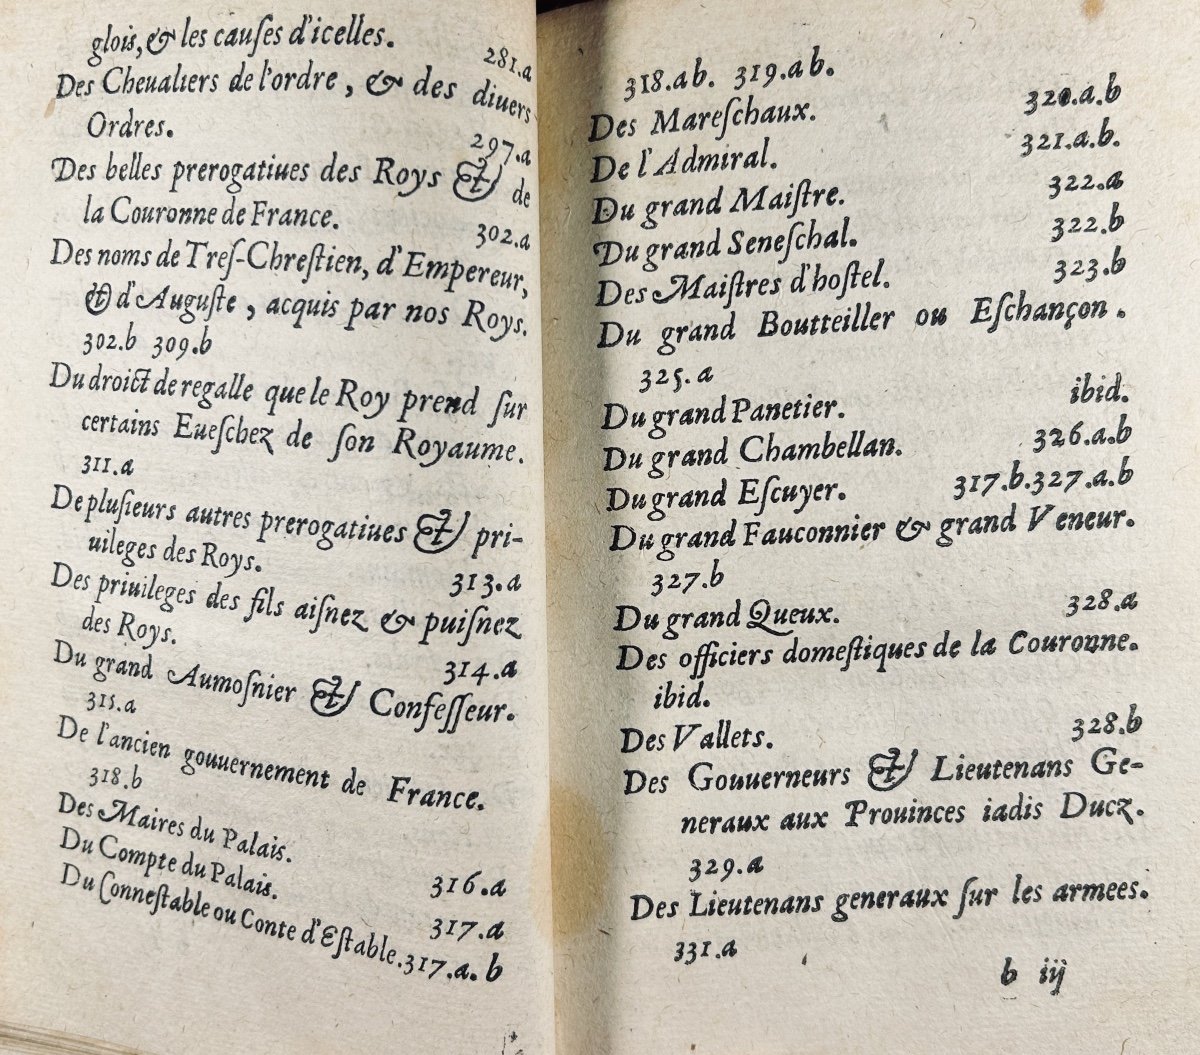 glois, & les cauſes d'icelles. 281.a
Des Cheualiers de l'ordre, & des diuers
Ordres. 297.a
Des belles prerogatiues des Roys & de
la Couronne de France. 302.a
Des noms de Treſ-Chreſtien, d'Empereur,
& d'Auguſte, acquis par nos Roys.
302.b 309.b
Du droict de regalle que le Roy prend ſur
certains Eueſchez de ſon Royaume.
311.a
De pluſieurs autres prerogatiues & pri-
uileges des Roys. 313.a
Des priuileges des fils aiſnez & puiſnez
des Roys. 314.a
Du grand Aumoſnier & Confeſſeur.
315.a
De l'ancien gouuernement de France.
318.b
Des Maires du Palais. 316.a
Du Compte du Palais. 317.a
Du Conneſtable ou Conte d'Eſtable. 317.a. b
318.ab. 319.ab.
Des Mareſchaux. 320.a.b
De l'Admiral. 321.a.b.
Du grand Maiſtre. 322.a
Du grand Seneſchal. 322.b
Des Maiſtres d'hoſtel. 323.b
Du grand Boutteiller ou Eſchançon.
325.a
Du grand Panetier. ibid.
Du grand Chambellan. 326.a.b
Du grand Eſcuyer. 317.b.327.a.b
Du grand Fauconnier & grand Veneur.
327.b
Du grand Queux. 328.a
Des officiers domeſtiques de la Couronne.
ibid.
Des Vallets. 328.b
Des Gouuerneurs & Lieutenans Ge-
neraux aux Prouinces iadis Ducz.
329.a
Des Lieutenans generaux ſur les armees.
331.a
b iij